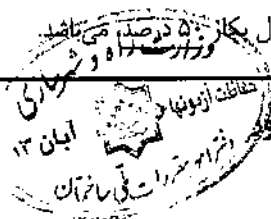 ل یکار ۵۰ درصد می‌باشد.
وزارت راه و شهرسازی
حفاظت آزمونها
آبان ۱۳
دفتر امور مقررات ملی ساختمان